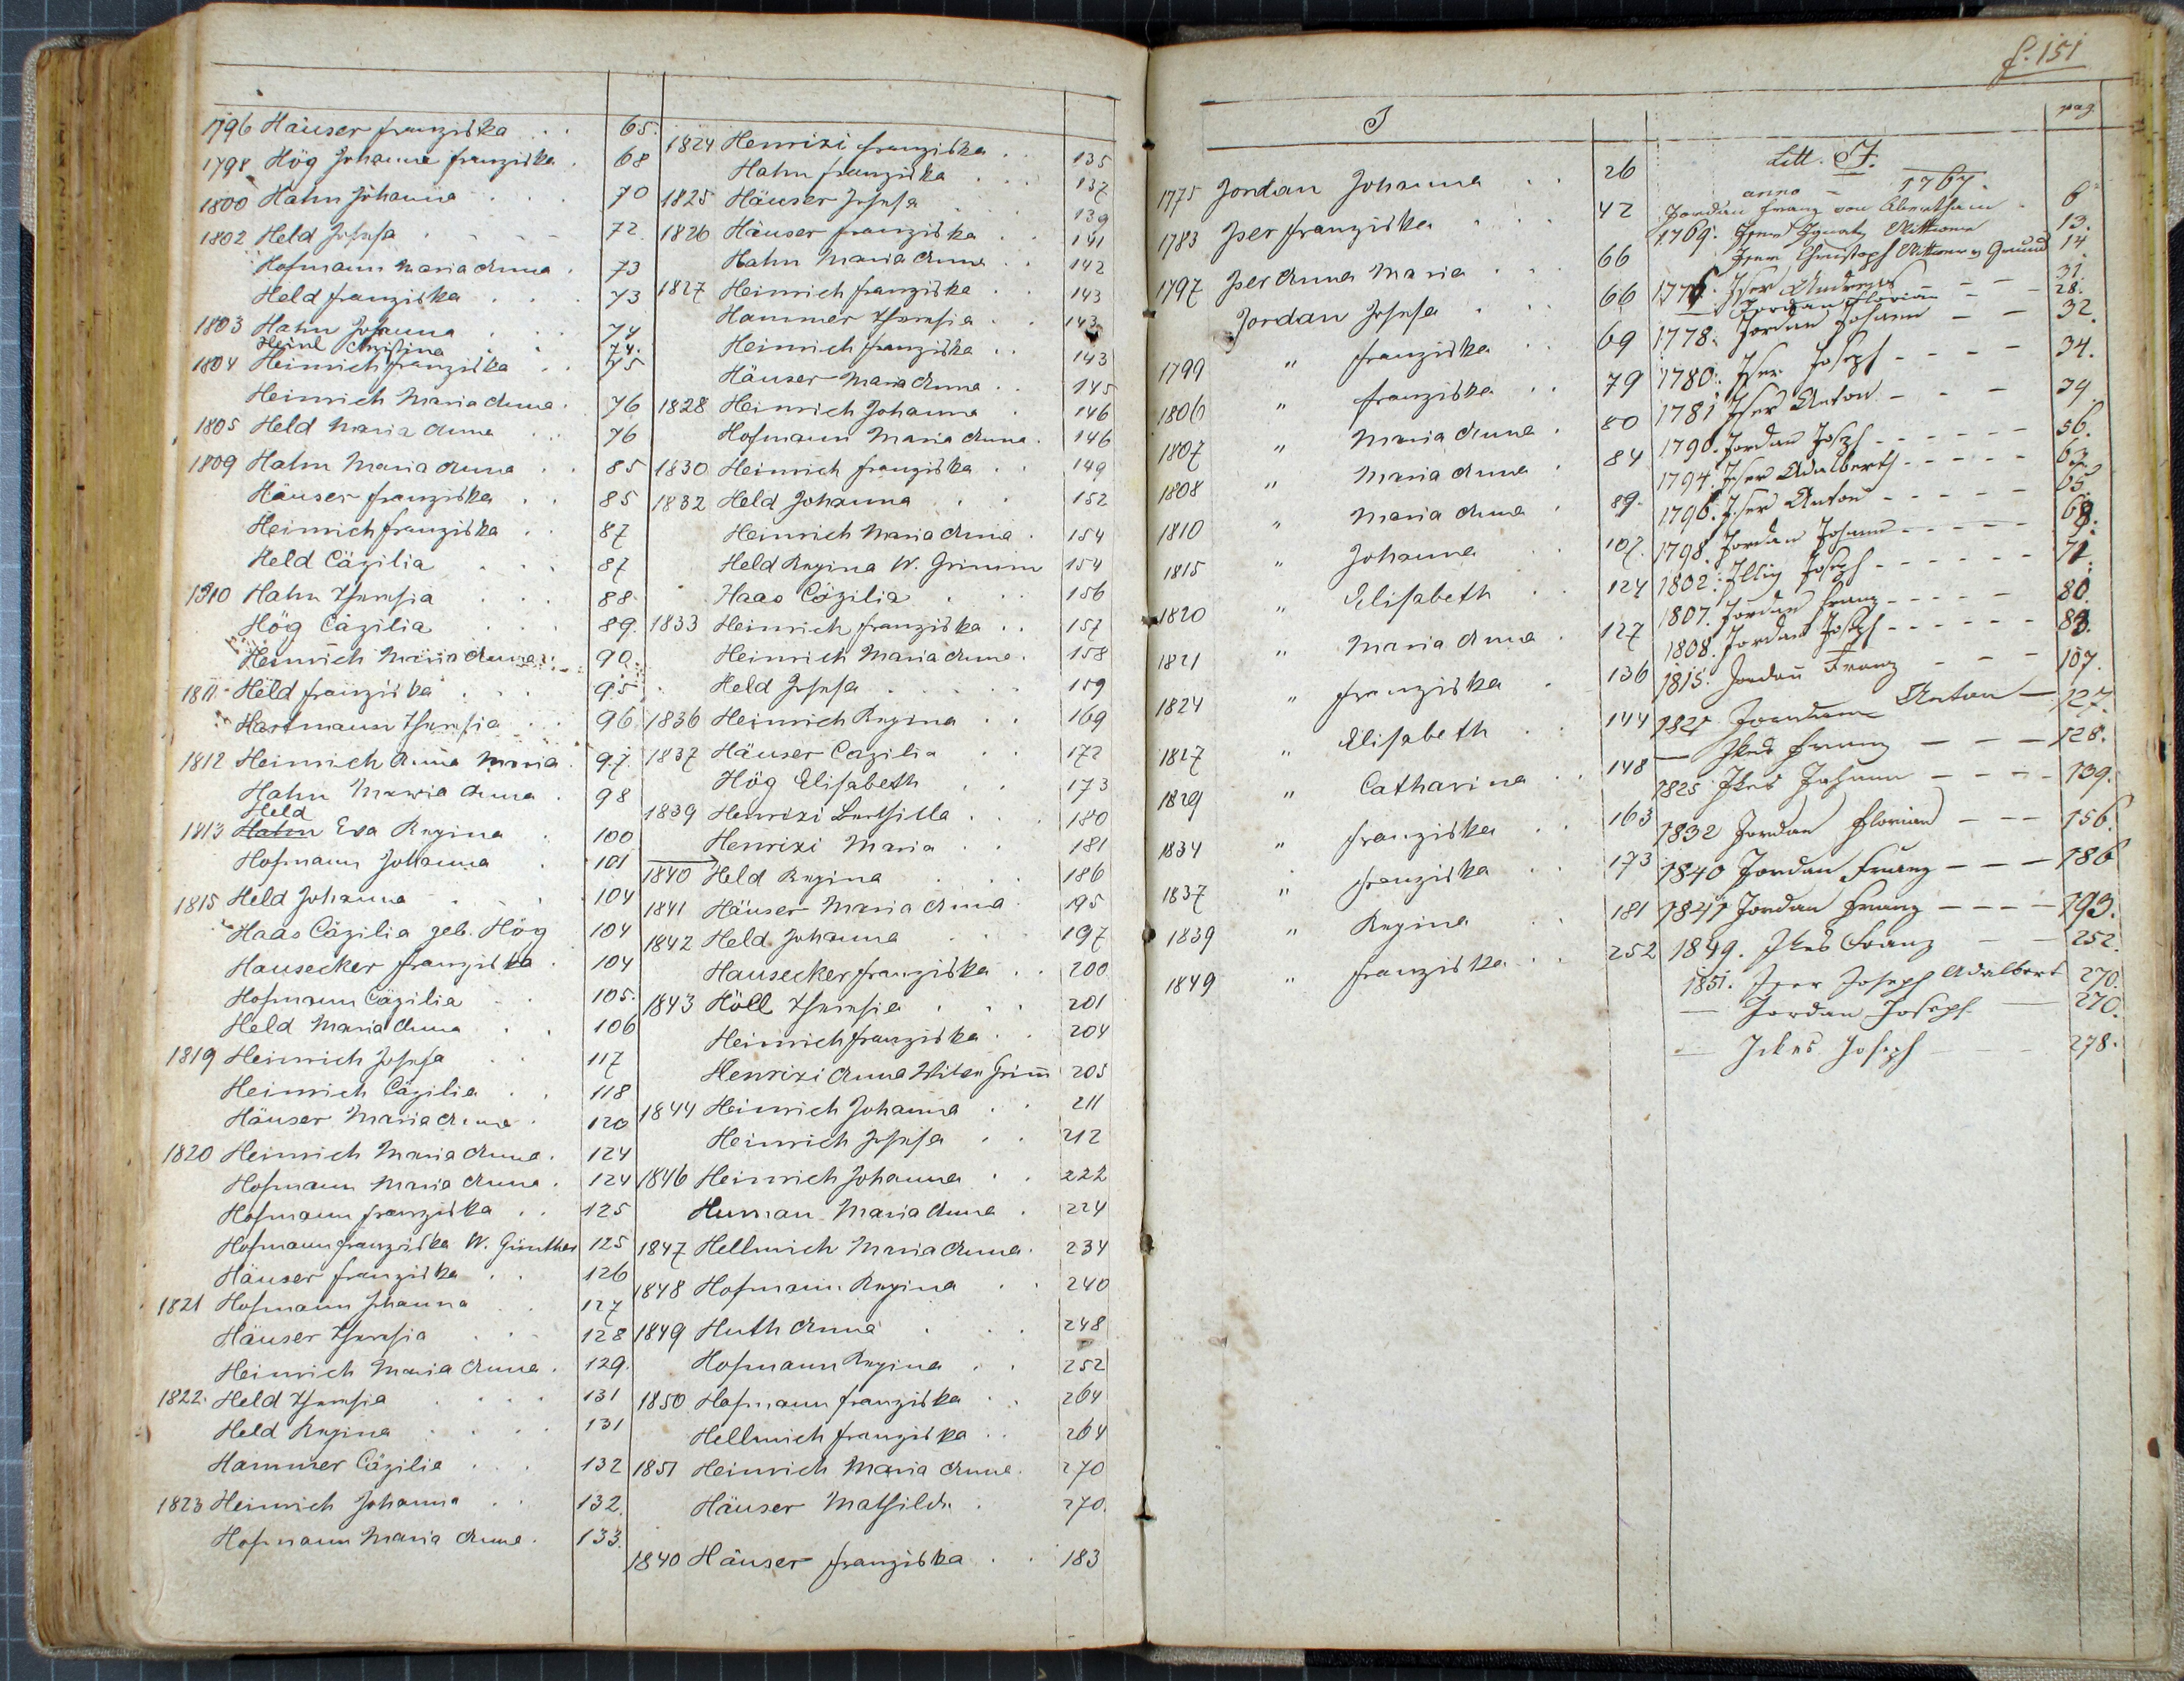 1796 Häuser Franziska . . 65.
1798 Hög Johanna Franziska . 68
1800 Hahn Johanna . . . 70
1802 Held Josefa . - - - 72
Hofmann Maria Anna . 73
Held Franziska . . . 73
1803 Hahn Johanna . . . 74
Heinl Christina . . 74.
1804 Heinrich Franziska . . 75
Heinrich Maria Anna . 76
1805 Held Maria Anna . . . 76
1809 Hahn Maria Anna . . 85
Häuser Franziska . . 85
Heinrich Franziska . . 87
Held Cäzilia . . . 87
1810 Hahn Theresia . . . 88
Hög Cäzilia . . . 89.
Heinrich Maria Anna . 90.
1811 Held Franziska . . . 95
Hartmann Theresia . . 96
1812 Heinrich Anna Maria . 97.
Hahn Maria Anna . 98
Held
1813 Hahn Eva Regina . 100
Hofmann Johanna . 101
1815 Held Johanna . . . 104
Haas Cäzilia geb. Hög 104
Hausecker Franziska . 104
Hofmann Cäzilia . . 105.
Held Maria Anna . . 106
1819 Heinrich Josefa . . 117
Heinrich Cäzilia . . 118
Häuser Maria Anna . 120
1820 Heinrich Maria Anna . 124
Hofmann Maria Anna . 124
Hofmann Franziska . . 125
Hofmann Franziska W. Günther 125
Häuser Franziska . . 126
1821 Hofmann Johanna . . 127
Häuser Theresia . . . 128
Heinrich Maria Anna . 129.
1822. Held Theresia . . . 131
Held Regina . . . . 131
Hammer Cäzilia . . . 132
1823 Heinrich Johanna . . 132.
Hofmann Maria Anna . 133.
1824 Henrixi Franziska . . 135
Hahn Franziska . . . 137
1825 Häuser Josefa . . . 139
1826 Häuser Franziska . . 141
Hahn Maria Anna . . 142
1827 Heinrich Franziska . . 143
Hammer Theresia . . 143
Heinrich Franziska . . 143
Häuser Maria Anna . . 145
1828 Heinrich Johanna . 146
Hofmann Maria Anna . 146
1830 Heinrich Franziska . . 149
1832 Held Johanna . . 152
Heinrich Maria Anna . 154
Held Regina W. Grimm 154
Haas Cäzilia . . . 156
1833 Heinrich Franziska . . 157
Heinrich Maria Anna . 158
Held Josefa . . . . 159
1836 Heinrich Regina . . 169
1837 Häuser Cäzilia . . 172
Hög Elisabeth . . 173
1839 Henrixi Berthilla . . . 180
Henrixi Maria . . 181
1840 Held Regina . . . 186
1841 Häuser Maria Anna 195
1842 Held Johanna . . . 197
Hausecker Franziska . . 200
1843 Höll Theresia . . . 201
Heinrich Franziska . . 204
Henrixi Anna Witwe Grim̄ 205
1844 Heinrich Johanna . . 211
Heinrich Josefa . . 212
1846 Heinrich Johanna . . 222
Human Maria Anna . 224
1847 Hellmich Maria Anna . 234
1848 Hofmann Regina . . 240
1849 Huth Anna . . . 248
Hofmann Regina . . 252
1850 Hofmann Franziska . . 264
Hellmich Franziska . . 264
1851 Heinrich Maria Anna . 270
Häuser Mathilde . 270.
1840 Häuser Franziska . . 183
f. 151
J
1775 Jordan Johanna . . 26
1783 Jser Franziska . . . 42
1797 Jser Anna Maria . . . 66
Jordan Josefa . . . 66
1799 " Franziska . . 69
1806 " Franziska . . 79
1807 " Maria Anna . 80
1808 " Maria Anna . 84
1810 " Maria Anna . 89.
1815 " Johanna . . 107.
1820 " Elisabeth . . 124
1821 " Maria Anna . 127
1824 " Franziska . 136
1827 " Elisabeth . . 144
1829 " Catharina . . 148
1834 " Franziska . . 163
1837 " Franziska . . 173
1839 " Regina . . 181
1849 " Franziska . . 252
pag.
Litt. J.
anno - 1767.
Jordan Franz von Abertham . 6
1769. Jser Ignatz Wittwer 13.
Jser Christoph Wittwer v Grund 14
1776. Jser Andreas - - - 31.
Jordan Florian - 28.
1778. Jordan Johann - - 32.
1780. Jser Joseph - - - - 34.
1781 Jser Anton - - - 39.
1790. Jordan Joseph - - - - - - 56.
1794. Jser Adalberth - - - - - 63.
1796. Jser Anton - - - - - 65.
1798. Jordan Johann - - - - - 69.
1802. Illig Joseph - - - - - 71.
1807. Jordan Franz - - - - - 80.
1808. Jordan Joseph - - - - - - 83.
1815. Jordan Franz - - - 107.
1821 Jordan Anton - 127.
- Ikes Franz - - - 128.
1825 Ikes Johann - - - - 139.
1832 Jordan Florian - - - 156.
1840 Jordan Franz - - - 186
1841 Jordan Franz - - - - 193.
1849. Ikes Franz - - 252.
1851. Jser Joseph Adalbert 270.
- Jordan Joseph - 270.
- Ickes Joseph - - - 278.